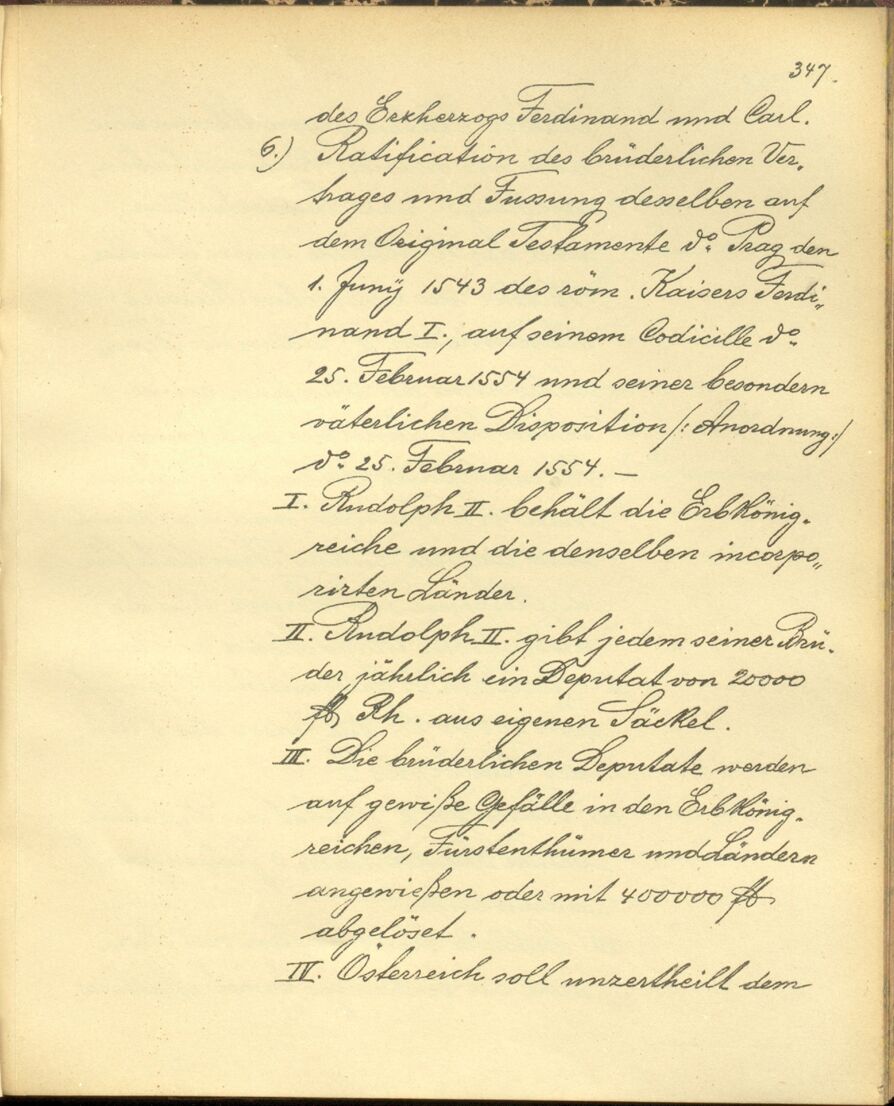 347.
des Erzherzogs Ferdinand und Carl.
6.) Ratification des brüderlichen Ver-
trages und Fussung desselben auf
dem Original Testamente do. Prag den
1. Junÿ 1543 des röm. Kaisers Ferdi„
nand I., auf seinem Codicille do.
25. Februar 1554 und seiner besondern
väterlichen Disposition /: Anordnung :/
do. 25. Februar 1554. —
I. Rudolph II. behält die Erbkönig-
reiche und die denselben incorpo„
rirten Länder.
II. Rudolph II. gibt jedem seiner Brü-
der jährlich ein Deputat von 20000
fl Rh. aus eigenen Säckel.
III. Die brüderlichen Deputate werden
auf gewiße Gefälle in den Erbkönig-
reichen, Fürstenthümer und Ländern
angewießen oder mit 400000 fl
abgelöset.
IV. Österreich soll unzertheilt dem